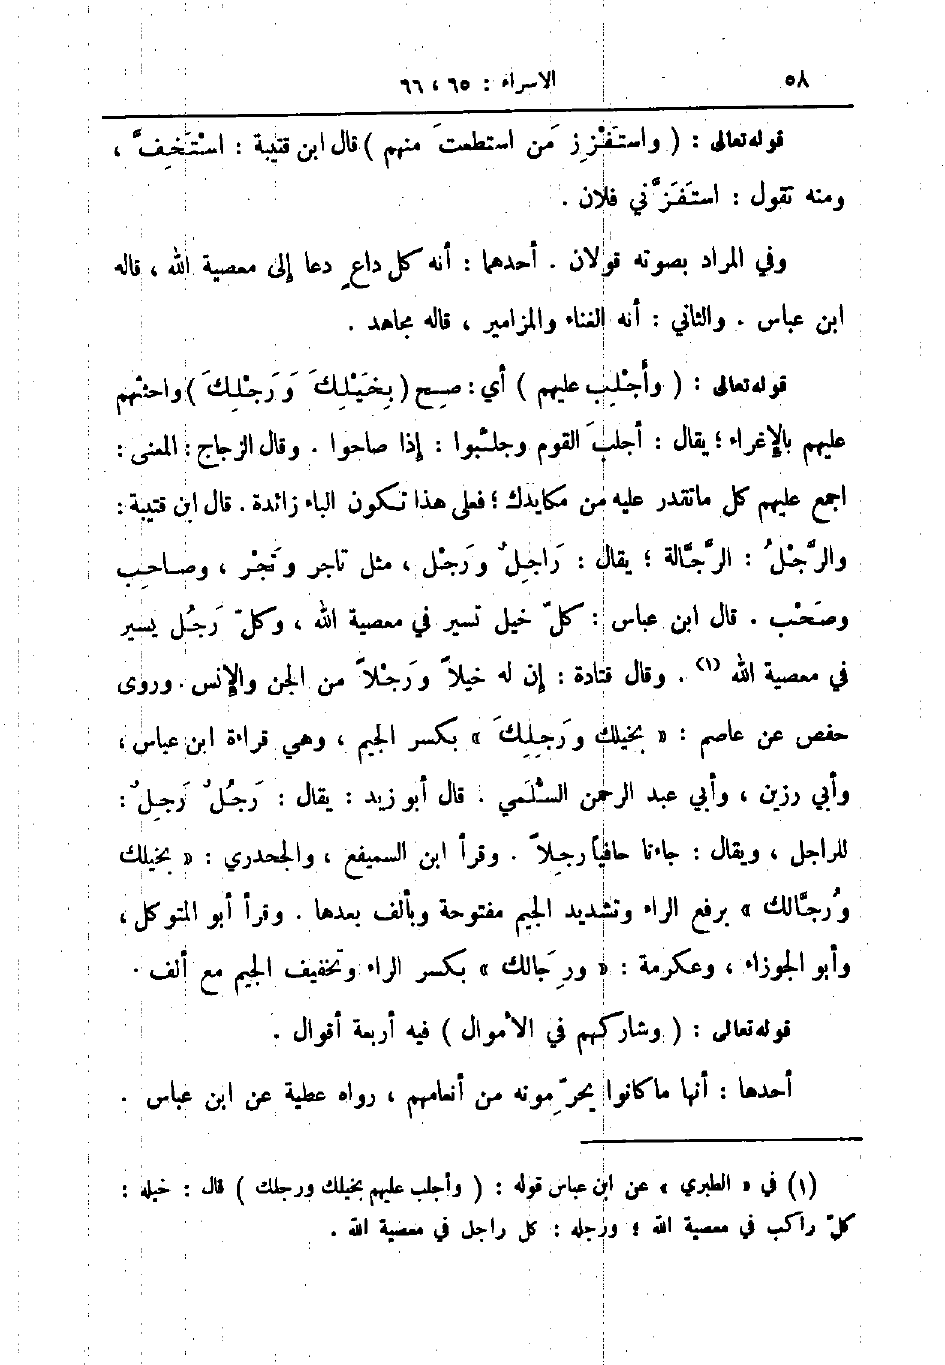 ٥٨ الاسراء : ٦٥ ، ٦٦
قوله تعالى : ( واستَفْزِز مَن استطعتَ منهم ) قال ابن قتيبة : اسْتَخِفَّ ،
ومنه تقول : استَفَزَّني فلان .
وفي المراد بصوته قولان . أحدهما : أنه كل داعٍ دعا إلى معصية الله ، قاله
ابن عباس . والثاني : أنه الغناء والمزامير ، قاله مجاهد .
قوله تعالى : ( وأَجْلِب عليهم ) أي : صِح ( بِخَيْلِكَ وَرَجْلِكَ ) واحثثهم
عليهم بالإغراء ؛ يقال : أجلبَ القوم وجلَّبوا : إذا صاحوا . وقال الزجاج : المعنى :
اجمع عليهم كل ماتقدر عليه من مكايدك ؛ فعلى هذا تكون الباء زائدة . قال ابن قتيبة :
والرَّجْلُ : الرَّجَّالة ؛ يقال : رَاجِلٌ ورَجْل ، مثل تاجر وتَجْر ، وصاحِب
وصَحْب . قال ابن عباس : كلّ خيل تسير في معصية الله ، وكلّ رَجُل يسير
في معصية الله (١) . وقال قتادة : إن له خيلاً ورَجْلاً من الجن والإنس . وروى
حفص عن عاصم : « بخيلك ورَجِلِكَ » بكسر الجيم ، وهي قراءة ابن عباس ،
وأبي رزين ، وأبي عبد الرحمن السُّلَمي . قال أبو زيد : يقال : رَجُلٌ رَجِلٌ :
للراجل ، ويقال : جاءنا حافياً رجِلاً . وقرأ ابن السميفع ، والجحدري : « بخيلك
ورُجَّالك » برفع الراء وتشديد الجيم مفتوحة وبألف بعدها . وقرأ أبو المتوكل ،
وأبو الجوزاء ، وعكرمة : « ورِجَالك » بكسر الراء وتخفيف الجيم مع ألف .
قوله تعالى : ( وشاركهم في الأموال ) فيه أربعة أقوال .
أحدها : أنها ماكانوا يحرِّمونه من أنعامهم ، رواه عطية عن ابن عباس .
(١) في « الطبري » عن ابن عباس قوله : ( وأجلب عليهم بخيلك ورجلك ) قال : خيله :
كلّ راكب في معصية الله ؛ ورجله : كل راجل في معصية الله .